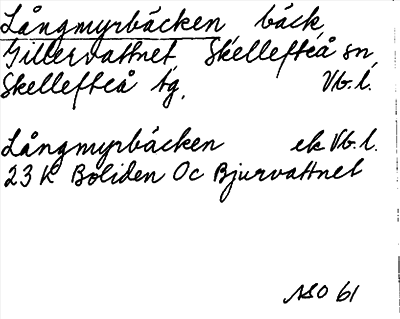 Långmyrbäcken bäck,
Gillervattnet, Skellefteå sn,
Skellefteå tg. Vb. l.
Långmyrbäcken ek Vb. l.
23 K Boliden Oc Bjurvattnet
ASO 61